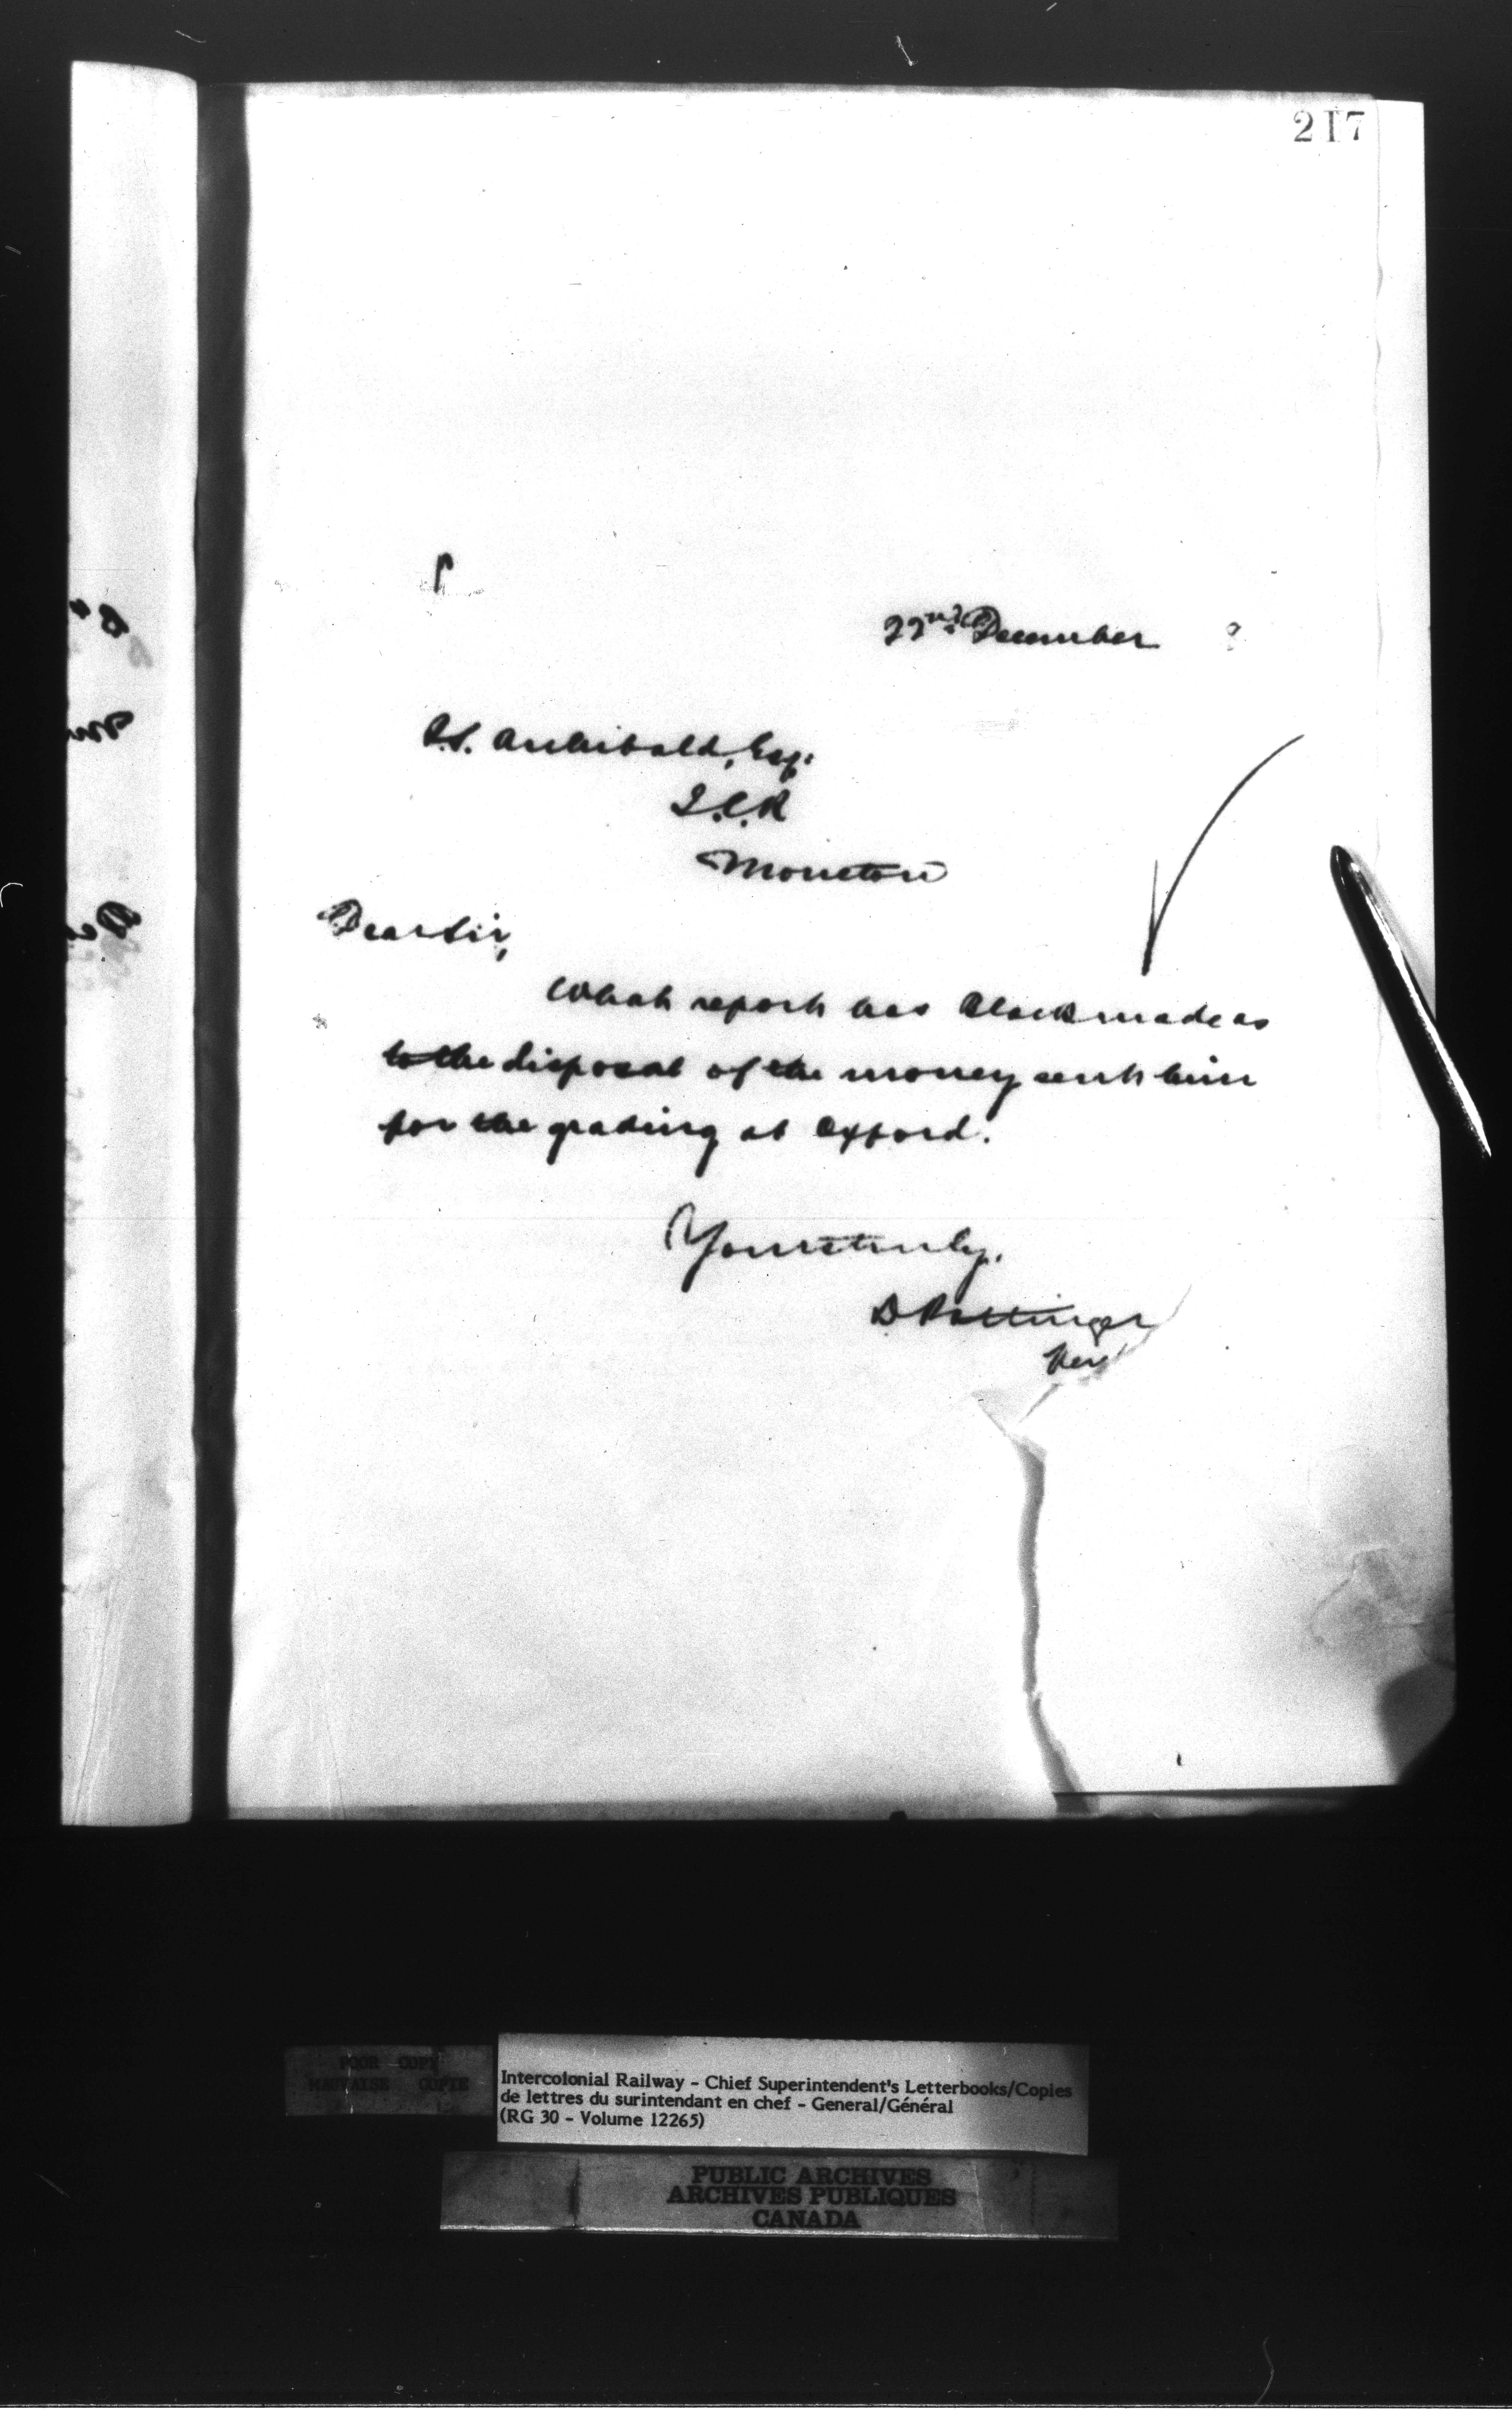 217
22nd December
P.S. Archibald, Esq.
I.C.R
Moncton
Dear Sir,
What report has Black made as
to the disposal of the money sent him
for the grading at Oxford.
Yours truly,
D Pottinger
POOR COPY
MAUVAISE COPIE
Intercolonial Railway - Chief Superintendent's Letterbooks/Copies
de lettres du surintendant en chef - General/Général
(RG 30 - Volume 12265)
PUBLIC ARCHIVES
ARCHIVES PUBLIQUES
CANADA